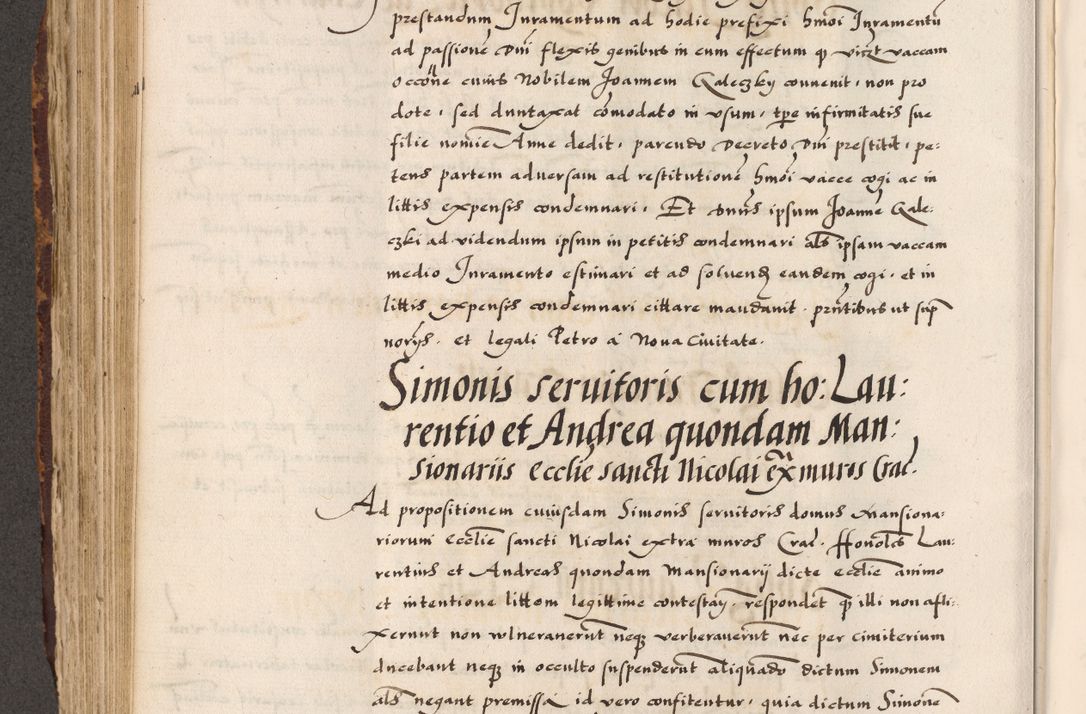 prestandum Iuramentum ad hodie prefixi hmoi Iuramentu
ad passione Dni flexis genibus in eum effectum q vizt vaccam
occõne cuius Nobilem Joannem Galeczky convenit, non pro
dote, sed duntaxat comodato in usum, tpe infirmitatis sue
filie nomie Anne dedit, parendo Decreto Dni prestitit, pe-
tens partem adversam ad restitutione hmoi vacce cogi ac in
littis expensis condemnari. Et dnus ipsum Joanne Gale-
czki ad videndum ipsum in petitis condemnari als ipsam vaccam
medio Iuramento estimari et ad solvend eandem cogi, et in
littis expensis condemnari cittare mandavit. prntibus ut sup
norys. et legali Petro a Nova Civitate.
Simonis servitoris cum ho: Lau:
rentio et Andrea quondam Man:
sionariis ecclie sancti Nicolai exa muros Crac.
Ad propositionem cuiusdam Simonis servitoris domus mansiona-
riorum ecclie sancti Nicolai extra muros Crac. Honolcs Lau:
rentius et Andreas quondam mansionarij dicte ecclie animo
et intentione littem legittime contestan, respondet q illi non afli-
xerunt non vulneraverut neq verberaverut nec per cimiterium
ducebant neq in occulto suspenderut aliquado dictum Simonem
als negant premissa id vero confitentur, quia dictum Simone